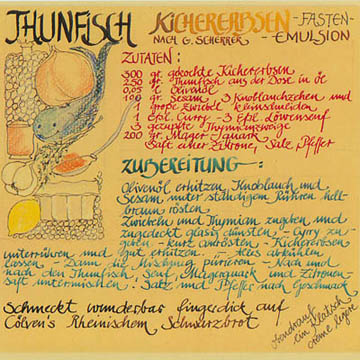 THUNFISCH
KICHERERBSEN - FASTEN-
NACH G. SCHERRER - EMULSION
ZUTATEN:
500 gr. gekochte Kichererbsen
250 gr. Thunfisch aus der Dose in öl
0,05 l. Olivenöl
100 gr. Sesam 3 Knoblauchzehen und
1 große Zwiebel kleinschneiden
1 Eßl. Curry - 3 Eßl. Löwensenf
3 gezupfte Thymianzweige
200 gr. Mager-Quark
Saft einer Zitrone, Salz, Pfeffer
ZUBEREITUNG:
Olivenöl erhitzen, Knoblauch und
Sesam unter ständigem Rühren hell-
braun rösten.
Zwiebeln und Thymian zugeben und
zugedeckt glasig dünsten - Curry zu-
geben - kurz anrösten - Kichererbsen
unterrühren und gut erhitzen - etwas abkühlen
lassen - Dann die Mischung pürieren - Nach und
nach den Thunfisch, Senf, Magerquark und Zitronen-
saft untermischen. Salz und Pfeffer nach Geschmack
Schmeckt wunderbar fingerdick auf
Cölven's Rheinischem Schwarzbrot
Obendrauf
ein Klatsch
crème légère